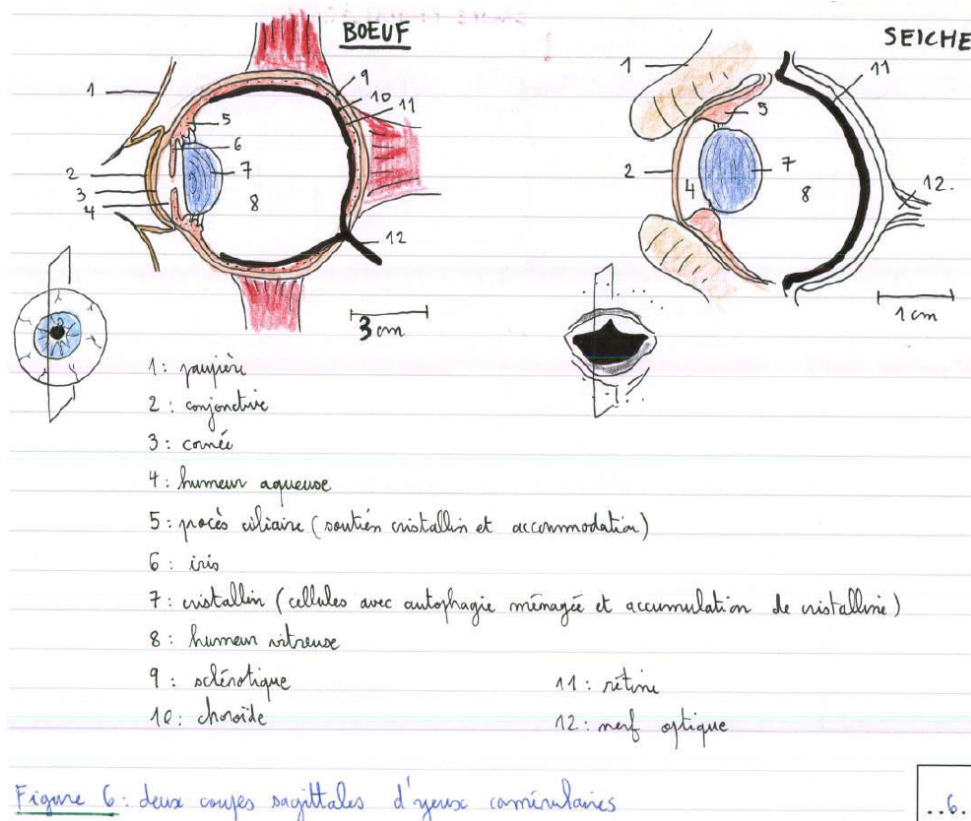 BOEUF
1
9
10
11
5
6
2
7
3
4
8
12
3 cm
SEICHE
1
11
5
2
7
4
8
12.
1 cm
1: paupière
2: conjonctive
3: cornée
4: humeur aqueuse
5: procès ciliaire (soutien cristallin et accommodation)
6: iris
7: cristallin (cellules avec autophagie ménagée et accumulation de cristalline)
8: humeur vitreuse
9: sclérotique
11: rétine
10: choroïde
12: nerf optique
Figure 6: deux coupes sagittales d'yeux camérulaires
..6.